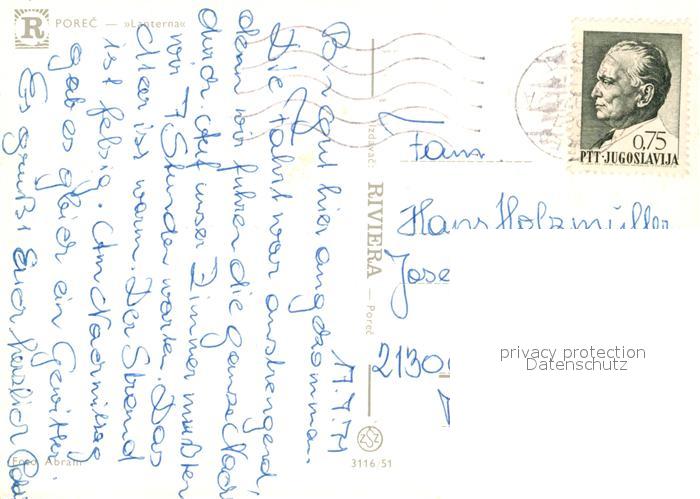 R
POREČ — »Lanterna«
17.7.71
Bin gut hier angekommen.
Die Fahrt war anstrengend,
denn wir fuhren die ganze Nacht
durch. Auf unser Zimmer mußten
wir 7 Stunden warten. Das
Meer ist warm. Der Strand
ist felsig. Am Nachmittag
gab es hier ein Gewitter.
Es grüßt Euch herzlich
Foto Abram
Izdavač: RIVIERA — Poreč
3116/51
0,75
PTT·JUGOSLAVIJA
Fam.
Hans Holzmüller
Jose
2130
privacy protection
Datenschutz